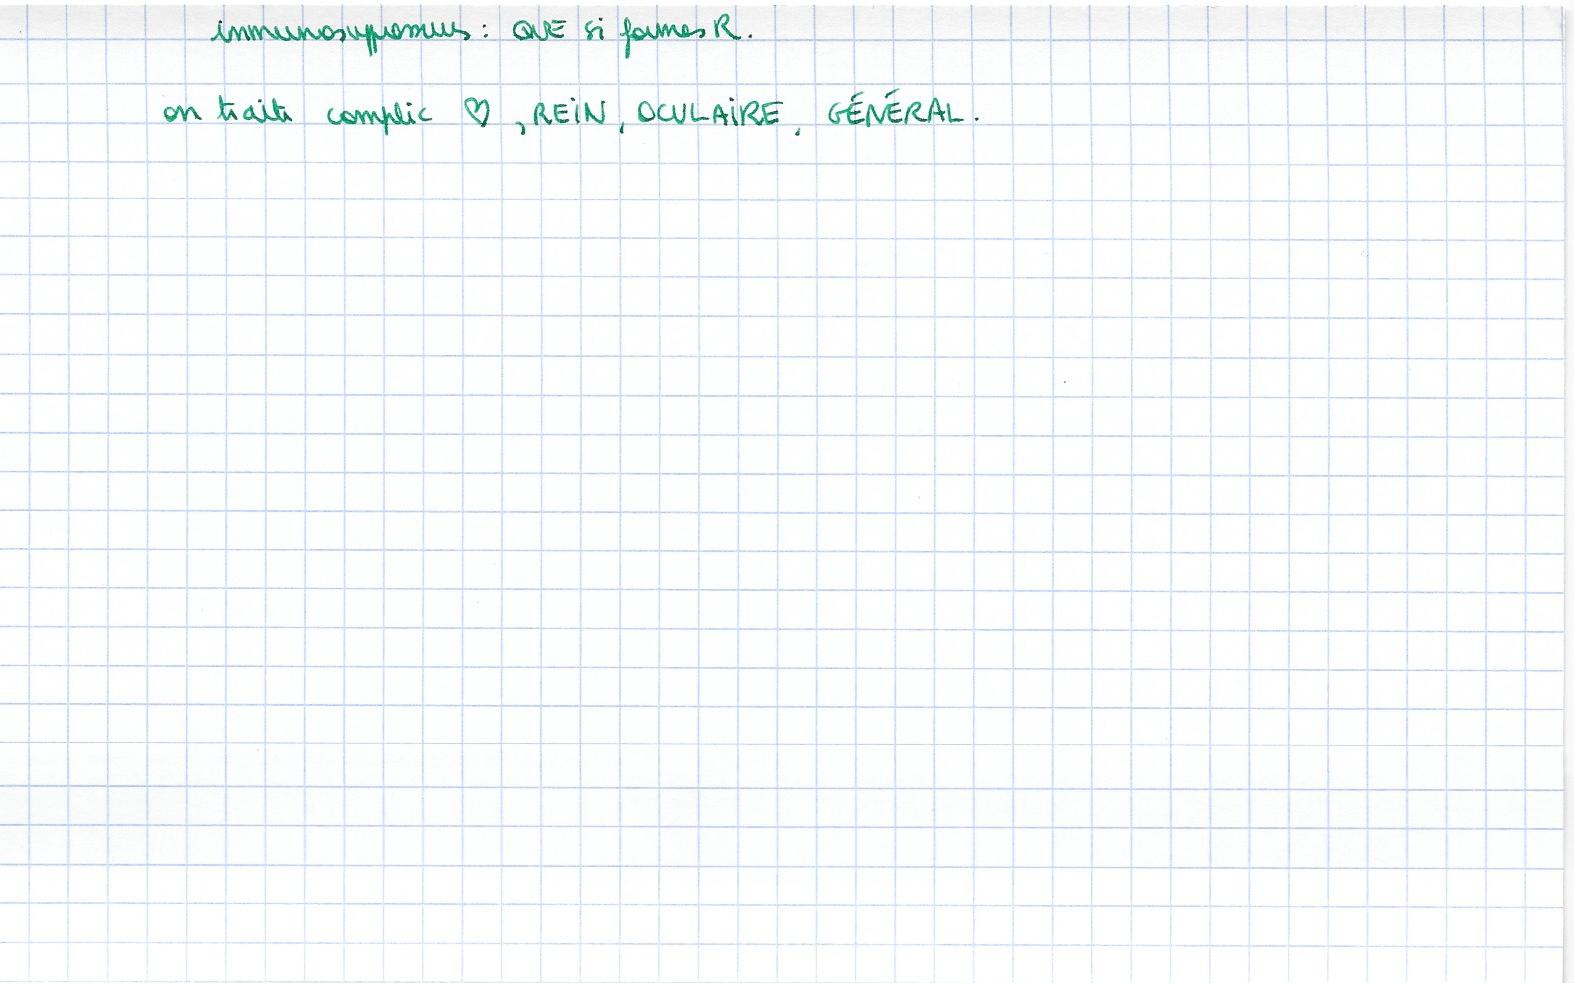 immunosuppresseurs : QUE si formes R.
on traite complic ♡, REIN, OCULAIRE, GÉNÉRAL.